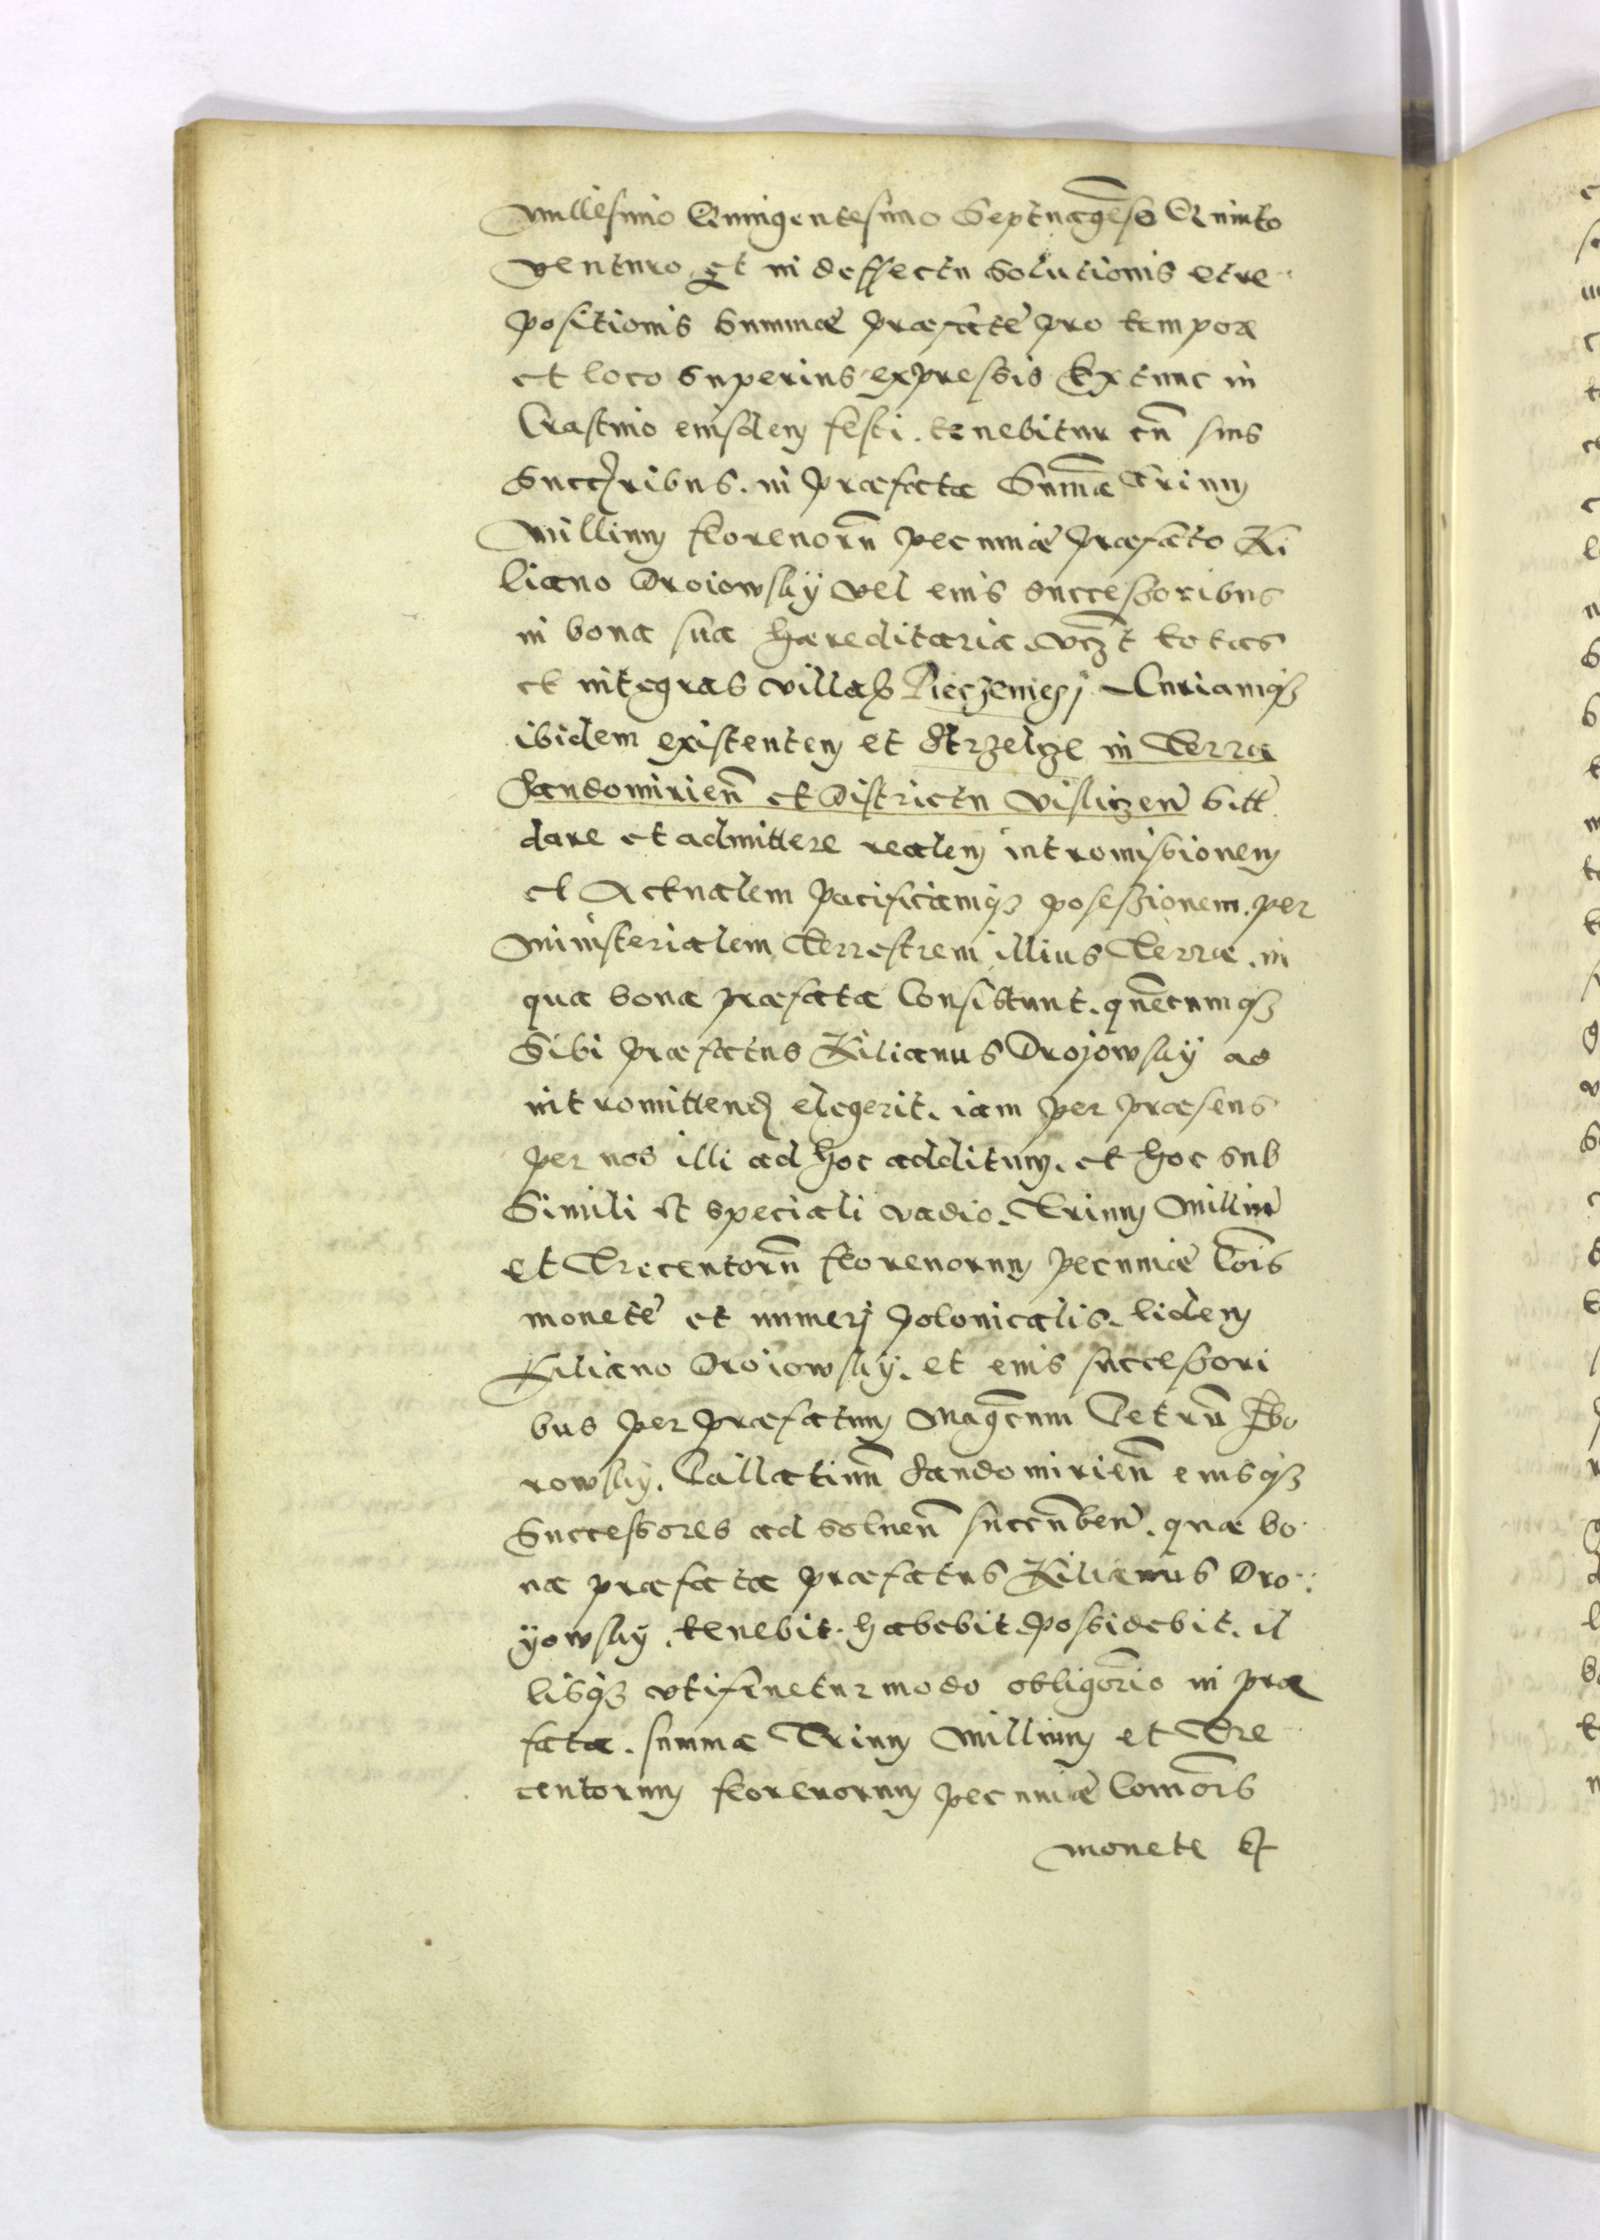 Millesimo Quingentesimo Septuagēso Quinto
venturo, Et in deffectu Solutionis et re
positionis Summæ præfatæ pro tempore
et loco superius expressis Ex tunc in
Crastino eiusdem festi. tenebitur cū suis
Succribus. in præfata Sum̄a Trium
Millium florenorū pecuniæ præfato Ki
liano Droiowsky vel eius successoribus
in bona sua hæreditaria. vczt totas
et integras villas Pieczeniegj Curiamqȝ
ibidem existentem et Strzelcze in Terra
Sandomirien̄ et Districtu Vislizen̄ sitt
dare et admittere realem intromissionem
et Actualem pacificamqȝ posessionem. per
Ministerialem Terrestrem illius Terræ. in
qua bona præfata Consistunt. quēcumqȝ
Sibi præfatus Kilianus Drojowsky ad
intromittend elegerit. iam per præsens
per nos illi ad hoc additum. et hoc sub
Simili et speciali vadio. Trium Milliū
et Trecentorū florenorum pecuniæ Cōis
monetæ et numerj polonicalis. Eidem
Kiliano Droiowsky. et eius successori
bus per præfatum Mag̅cum Petrū Sbo
rowsky. Pallatinū Sandomirien̄ eiusqȝ
Successores ad soluen̄ succūben̄. quæ bo
na præfata præfatus Kilianus Dro
yowsky. tenebit. habebit possidebit. il
lisqȝ utifruetur modo obligōrio in præ
fata. summa Trium Millium et Tre
centorum florenorum pecuniæ Com̄ōis
monete Et